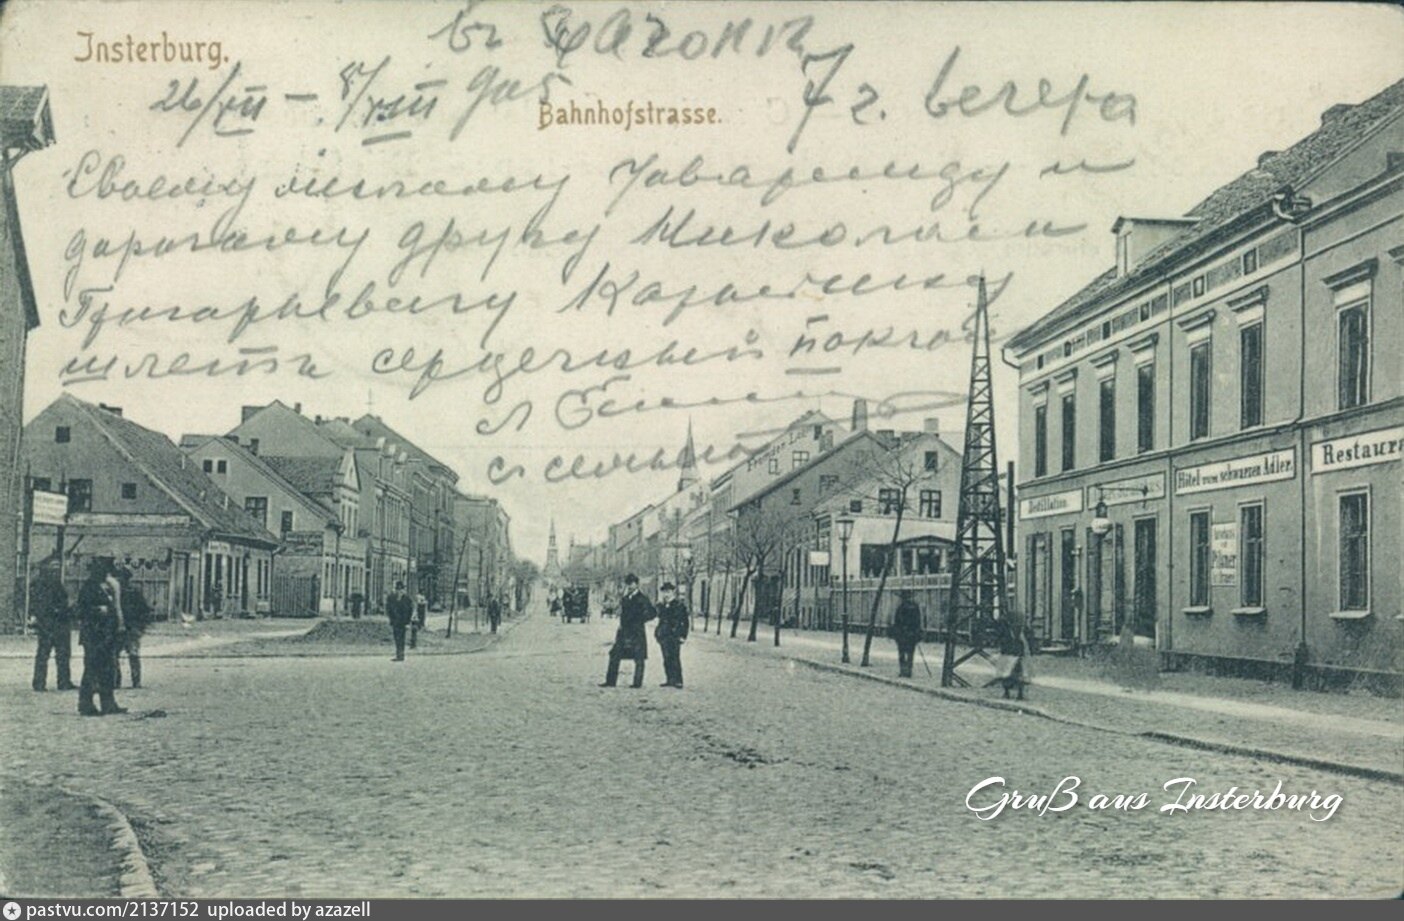 въ вагонѣ
Insterburg.
26/VII – 8/VIII 905
Bahnhofstrasse.
7 г. вечера
Своему милому товарищу и
дорогому другу Николаю
Григорьевичу
шлетъ сердечный поклонъ
съ семьей
Fremden Log
Destillation.
Hôtel vom schwarzen Adler.
Restaura
Pilsner
Gruß aus Insterburg
pastvu.com/2137152 uploaded by azazell